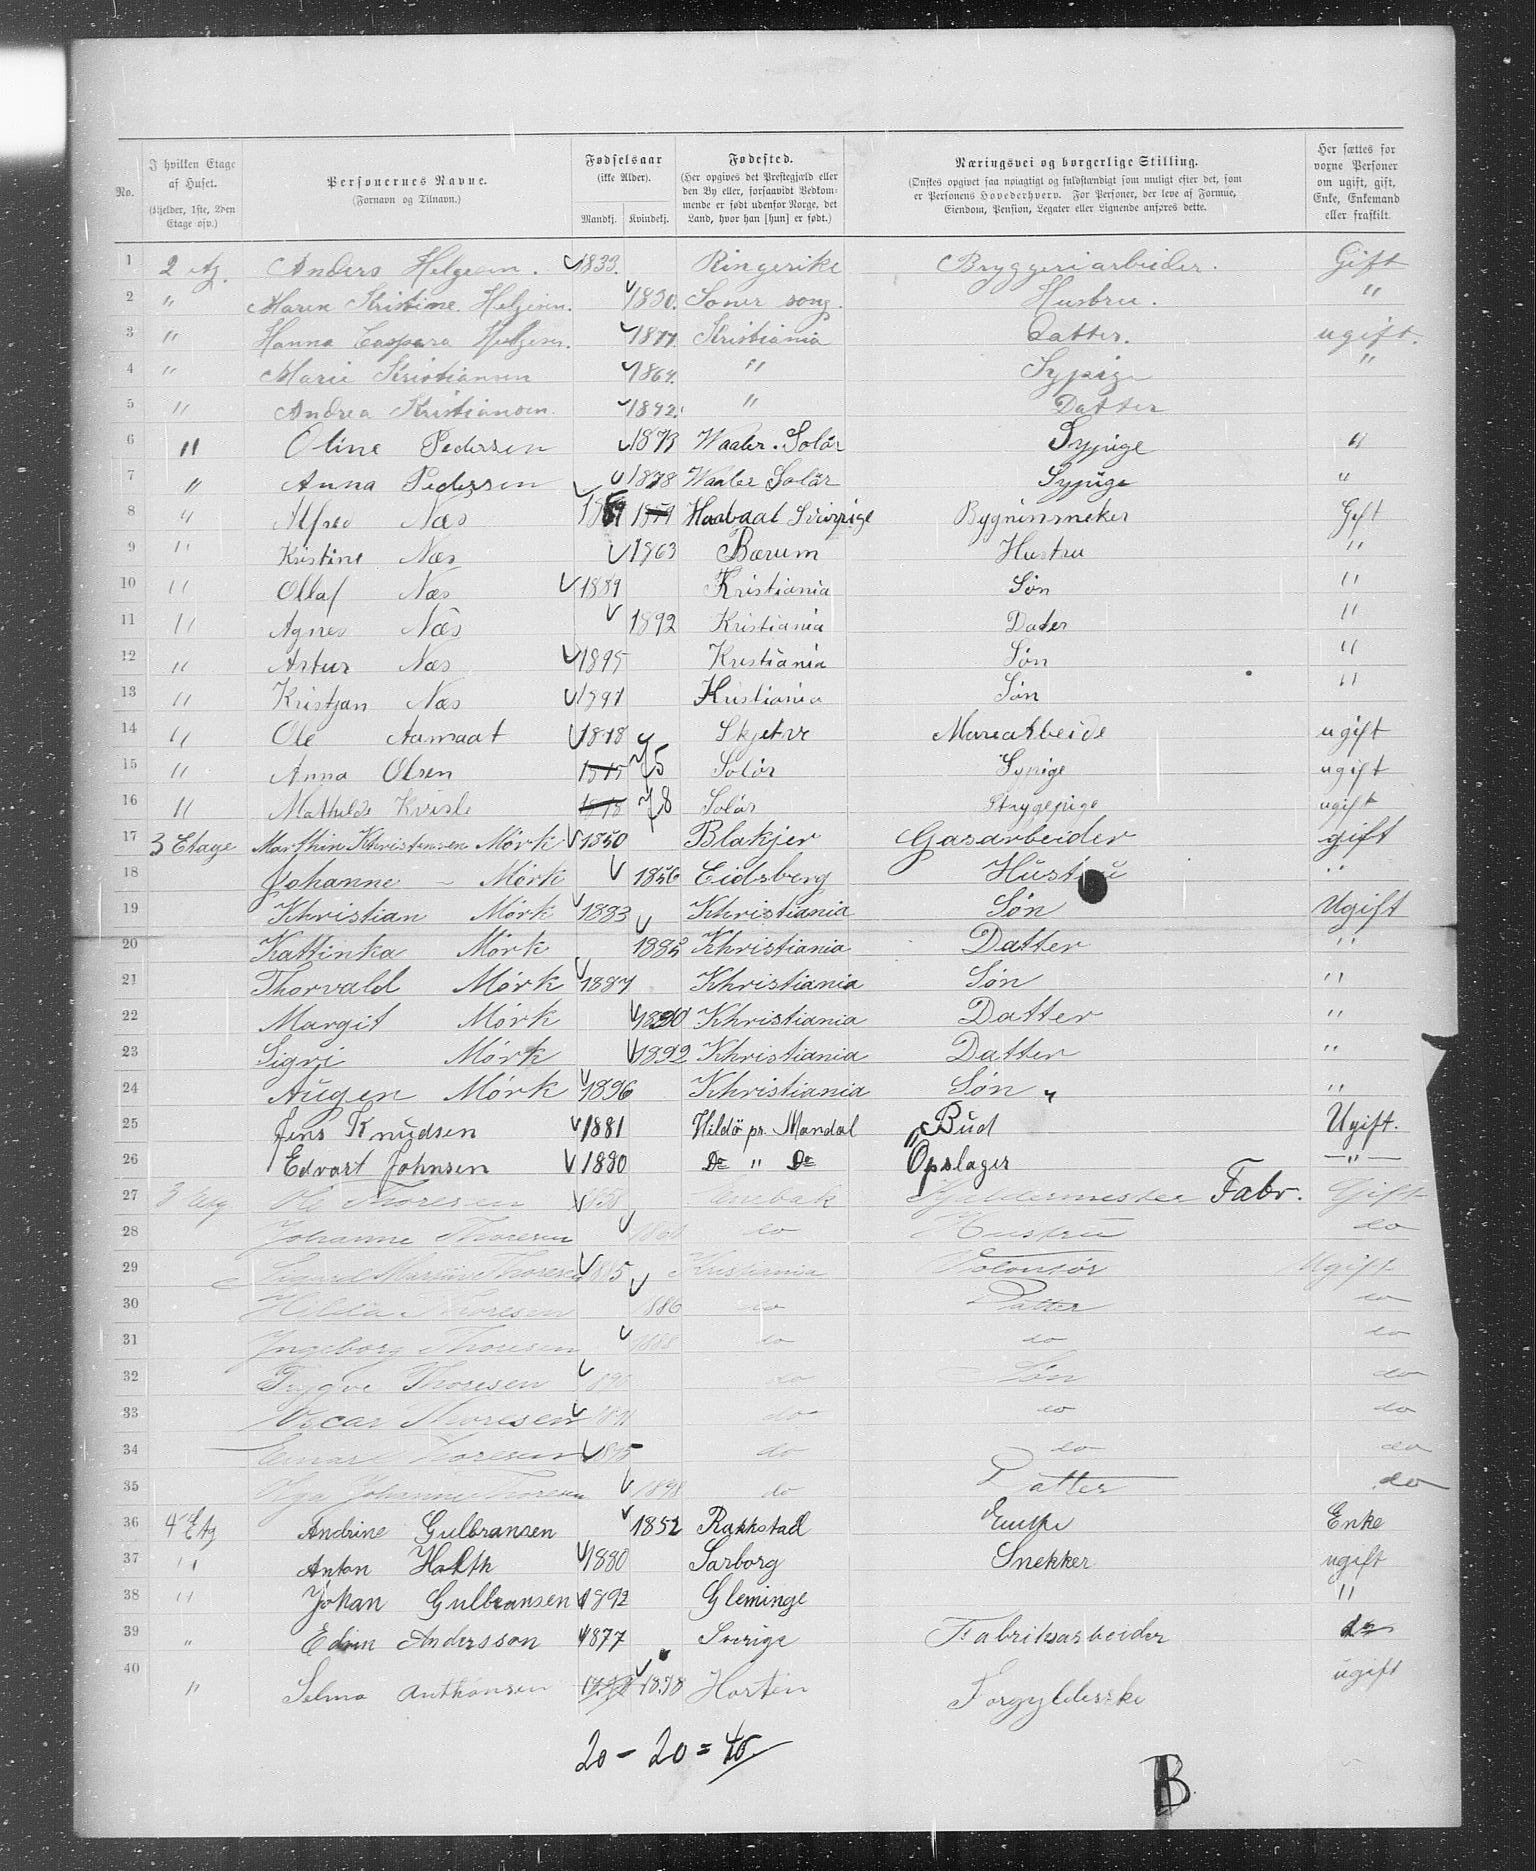 No.
I hvilken Etage af Huset. (Kjelder, 1ste, 2den Etage osv.)
Personernes Navne. (Fornavn og Tilnavn.)
Fødselsaar (ikke Alder). Mandkj. Kvindekj.
Fødested. (Her opgives det Prestegjæld eller den By eller, forsaavidt Bedkommende er født udenfor Norge, det Land, hvor han [hun] er født.)
Næringsvei og borgerlige Stilling. (Ønskes opgivet saa nøiagtigt og fuldstændigt som muligt efter det, som er Personens Hovederhverv. For Personer, der leve af Formue, Eiendom, Pension, Legater eller Lignende anføres dette.)
Her sættes for voxne Personer om ugift, gift, Enke, Enkemand eller fraskilt.
1 2 Etg. Anders Helgesen. 1833. Ringerike Bryggeriarbeider. Gift
2 " Maren Kristine Helgesen. 1830. Soner song. Husbru. "
3 " Hanna Caspara Helgesen. 1877. Kristiania Datter. ugift.
4 " Marie Kristiansen 1864. " Sypige "
5 " Andrea Kristiansen 1892. " Datter
6 " Oline Pedersen 1873 Waaler. Solør Sypige "
7 " Anna Pedersen 1878 Waaler Solör Sypige "
8 " Alfred Næs Bygninsneker Gift
9 " Kristine Næs 1863 Bærum Hustru "
10 " Ollaf Næs 1889 Kristiania Søn "
11 " Agnes Næs 1892 Kristiania Dater "
12 " Artur Næs 1895 Kristiania Søn "
13 " Kristjan Næs 1891 Kristiania Søn "
14 " Ole Aamaat 1878 Skjetve Murearbeide ugift
15 " Anna Olsen 75 Solør Sypige ugift
16 " Mathilde Kvisle 78 Solør Strygepige ugift
17 3 Etage Marthin Khristensen Mörk 1850 Blakjer Gasarbeider gift
18 Johanne – Mörk 1856 Eidsberg Hustru "
19 Khristian Mörk 1883 Khristiania Søn Ugift
20 Kattinka Mörk 1885 Khristiania Datter "
21 Thorvald Mörk 1887 Khristiania Søn "
22 Margit Mörk 1890 Khristiania Datter "
23 Sigri Mörk 1892 Khristiania Datter "
24 Augen Mörk 1896 Khristiania Søn " "
25 Jens Knudsen 1881 Hildö pr. Mandal Bud Ugift.
26 Edvart Johnsen 1880 Do " Do Opslager —"—
27 3 Etg Ole Thoresen Enebak Kjeldermester Fabr. Gift
28 Johanne Thoresen do Hustru do
29 Sigurd Martin Thoresen Kristiania Volontør Ugift
30 Hilda Thoresen 1886 do Datter do
31 Ingeborg Thoresen 1888 do do do
32 Trygve Thoresen do Søn do
33 Oscar Thoresen do do do
34 Einar Thoresen 1895 do do do
35 Johanne Thoresen 1898 do Datter do
36 4 Etg Andrine Gulbransen 1852 Rakkstad Enke
37 " Anton Holth 1880 Sarborg Snekker ugift
38 " Johan Gulbransen 1892 Gleminge "
39 " Edvin Andersson 1877 Sverige Fabriksarbeider do
40 " Selma Anthonsen 1878 Horten Forgylderske ugift
20 – 20 = 40
B